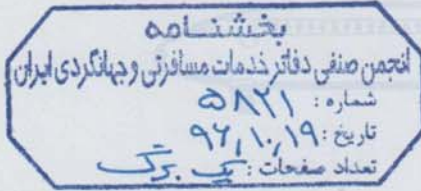 بخشنامه
انجمن صنفی دفاتر خدمات مسافرتی و جهانگردی ایران
شماره : ۵۸۲۱
تاریخ : ۹۶٫۱۰٫۱۹
تعداد صفحات : یک برگ